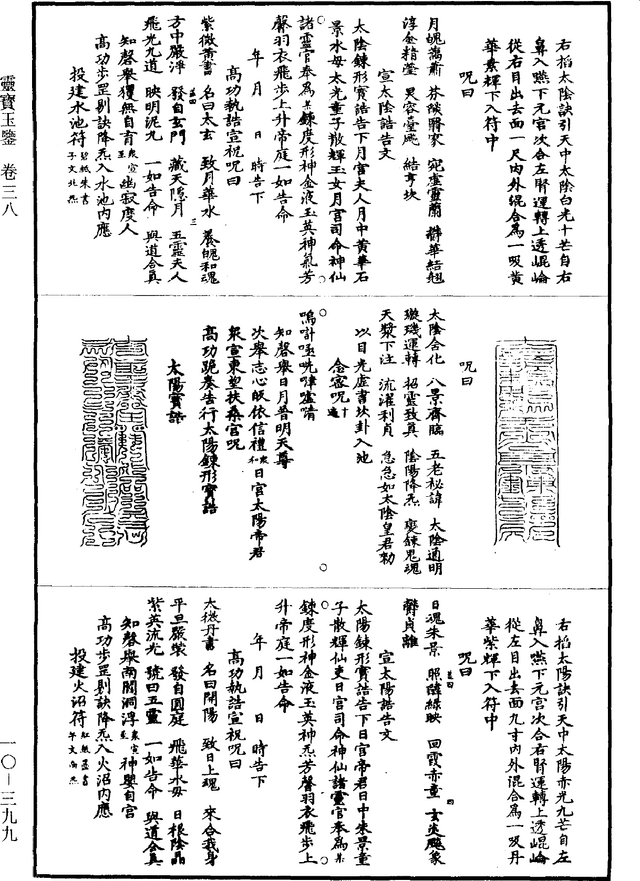 靈寶玉鑒 卷三八
一〇—三九九
右掐太陰訣引天中太陰白光十芒自右
鼻入嚥下元宮次合左腎運轉上透崐崘
從右目出去面一尺內外緄合為一吸黃
華素輝下入符中
呪曰
宣太陰誥告文
太陰鍊形寶誥告下月宮夫人月中黃華石
景水母太光童子散輝玉女月宮司命神仙
諸靈官奉為某鍊度形神金液玉英神氣芳
馨羽衣飛步上升帝庭一如告命
年 月 日 時告下
高功執誥宣祝呪曰
紫微黃書 名曰太玄 致月華水 養魄和魂
方中嚴淨 發自玄門 藏天隱月 五靈夫人
飛光九道 映明泥丸 一如告命 與道合真
知磬舉獲無自育 衆宣至 幽寂度人
高功步罡剔訣降炁入水池內應
投建水池符
呪曰
太陰合化 八景齊臨 五老秘諱 太陰通明
璇璣運轉 招靈致真 陰陽降炁 變鍊鬼魂
天漿下注 流濯利貞 急急如太陰皇君勑
以目光虛書坎卦入池
念密呪 十遍
知磬舉日月普明天尊
次舉志心皈依信禮 衆和 日宮太陽帝君
衆宣東望扶桑宮呪
高功跪奏告行太陽鍊形寶誥
太陽寶誥
右掐太陽訣引天中太陽赤光九芒自左
鼻入嚥下元宮次合右腎運轉上透崐崘
從左目出去面九寸內外混合為一吸丹
華紫輝下入符中
呪曰
日魂朱景 照韜綠映 回霞赤童 玄炎飈象
宣太陽誥告文
太陽鍊形寶誥告下日宮帝君日中朱景童
子散輝仙吏日宮司命神仙諸靈官奉為某
鍊度形神金液玉英神炁芳馨羽衣飛步上
升帝庭一如告命
年 月 日 時告下
高功執誥宣祝呪曰
太微丹書 名曰開陽 致日上魂 來合我身
平旦嚴裝 發自圓庭 飛華水母 日根陰晶
紫英流光 號曰五靈 一如告命 與道合真
知磬舉南閻洞浮 衆宣至 神與自宮
高功步罡剔訣降炁入火沼內應
投建火沼符